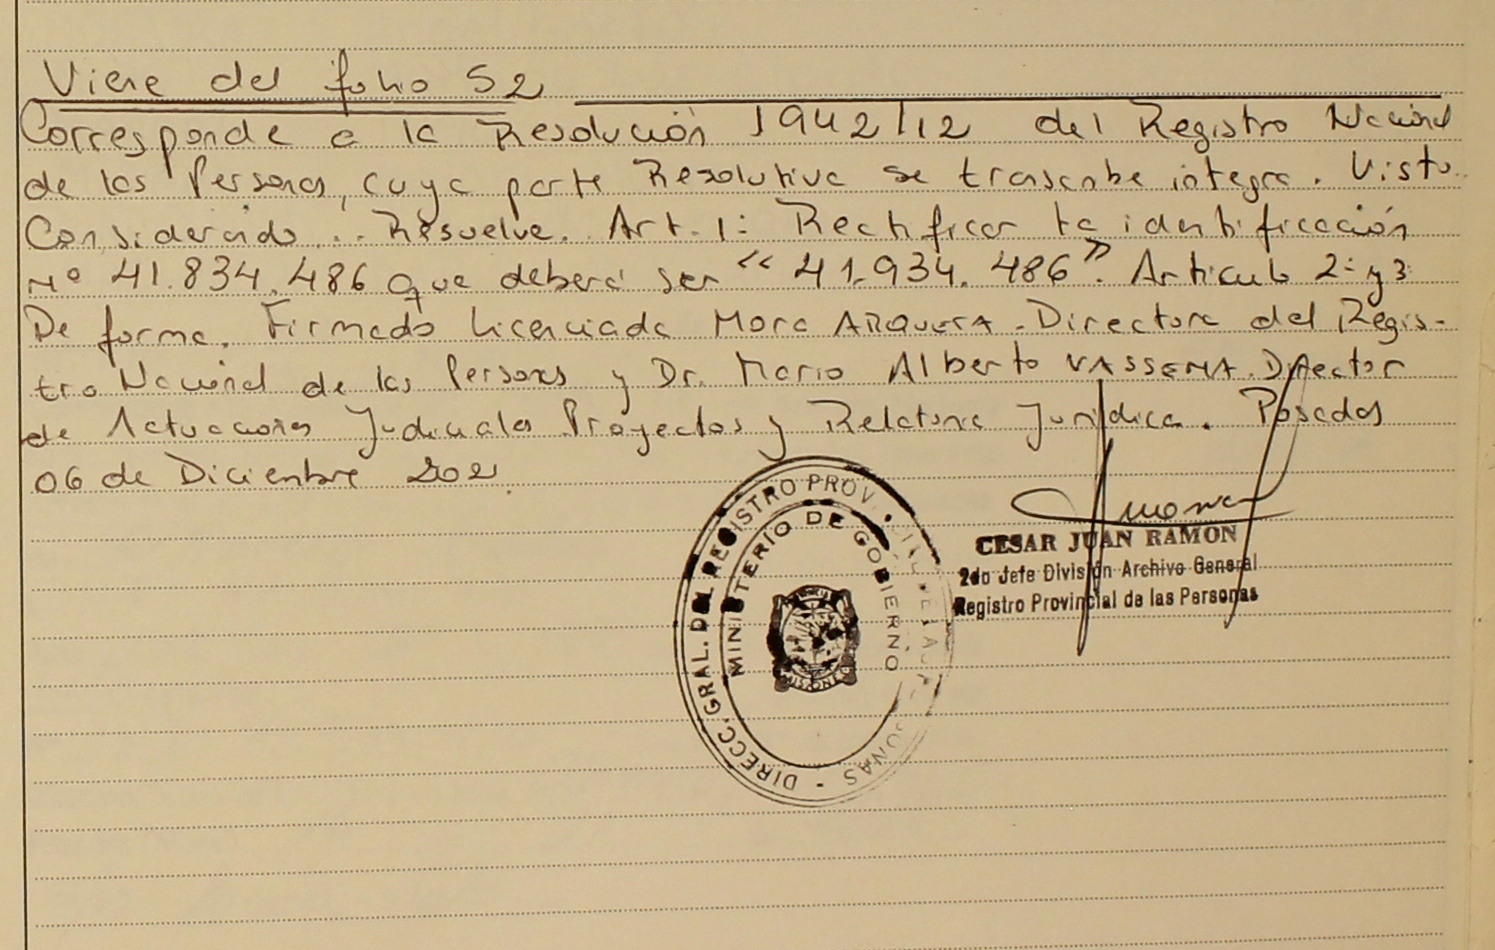 Viene del folio 52
Corresponde a la Resolución 1942/12 del Registro Nacional
de las Personas, cuya parte Resolutiva se transcribe integra. Visto
Considerando... Resuelve. Art. 1: Rectificar la identificación
Nº 41.834.486 que deberá ser “41.934.486”. Articulo 2: y 3
De forma. Firmado Licenciada Mora ARQUETA - Directora del Regis-
tro Nacional de las Personas y Dr. Mario Alberto VASSENA. Director
de Actuaciones Judiciales Proyectos y Relatoria Jurídica. Posadas
06 de Diciembre 202
DIRECC. GRAL. DEL REGISTRO PROV.
MINISTERIO DE GOBIERNO
MISIONES
CESAR JUAN RAMON
2do Jefe División Archivo General
Registro Provincial de las Personas